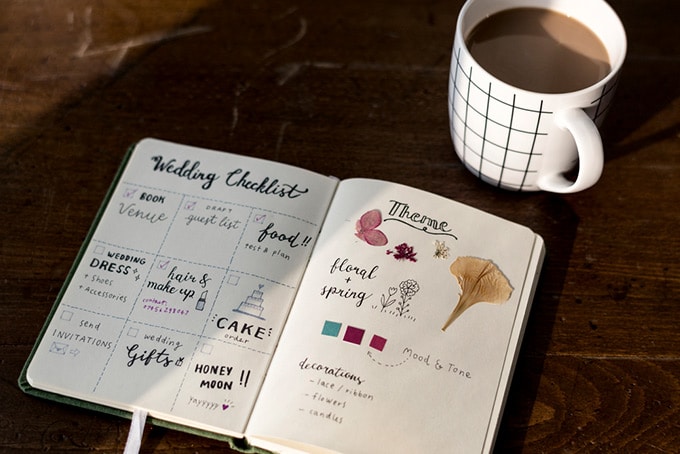 Wedding Checklist
BOOK
Venue
DRAFT
guest list
food!!
test & plan
WEDDING
DRESS
+ Shoes
+ Accessories
hair &
make up
contact:
CAKE
order
send
INVITATIONS
wedding
Gifts
HONEY
MOON!!
yayyyyy
Theme
floral
+
spring
Mood & Tone
decorations
- lace / ribbon
- flowers
- candles